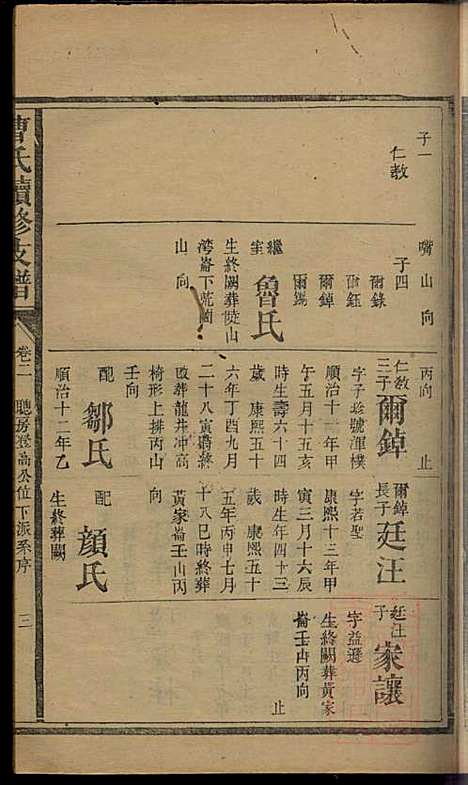 子一
仁教
嘴山向
子四
爾錄
爾鈺
爾鋽
爾錫
繼室
魯氏
生終闕葬陡山
灣崙下苑園
山向
丙向 止
仁教三子
爾鋽
字子珍號渾樸
順治十一年甲
午五月十五亥
時生壽六十四
歲 康熙五十
六年丁酉九月
二十八寅時終
改葬龍井冲高
椅形上排丙山
壬向
配
鄒氏
順治十二年乙
爾鋽長子
廷汪
字若聖
康熙十三年甲
寅三月十六辰
時生年四十三
歲 康熙五十
五年丙申七月
十八巳時終葬
黃家崙壬山丙
向
配
顔氏
生終葬闕
廷汪子
家讓
字益遜
生終闕葬黃家
崙壬山丙向
止
曹氏續修支譜
卷二
聰房登高公位下派系序
三